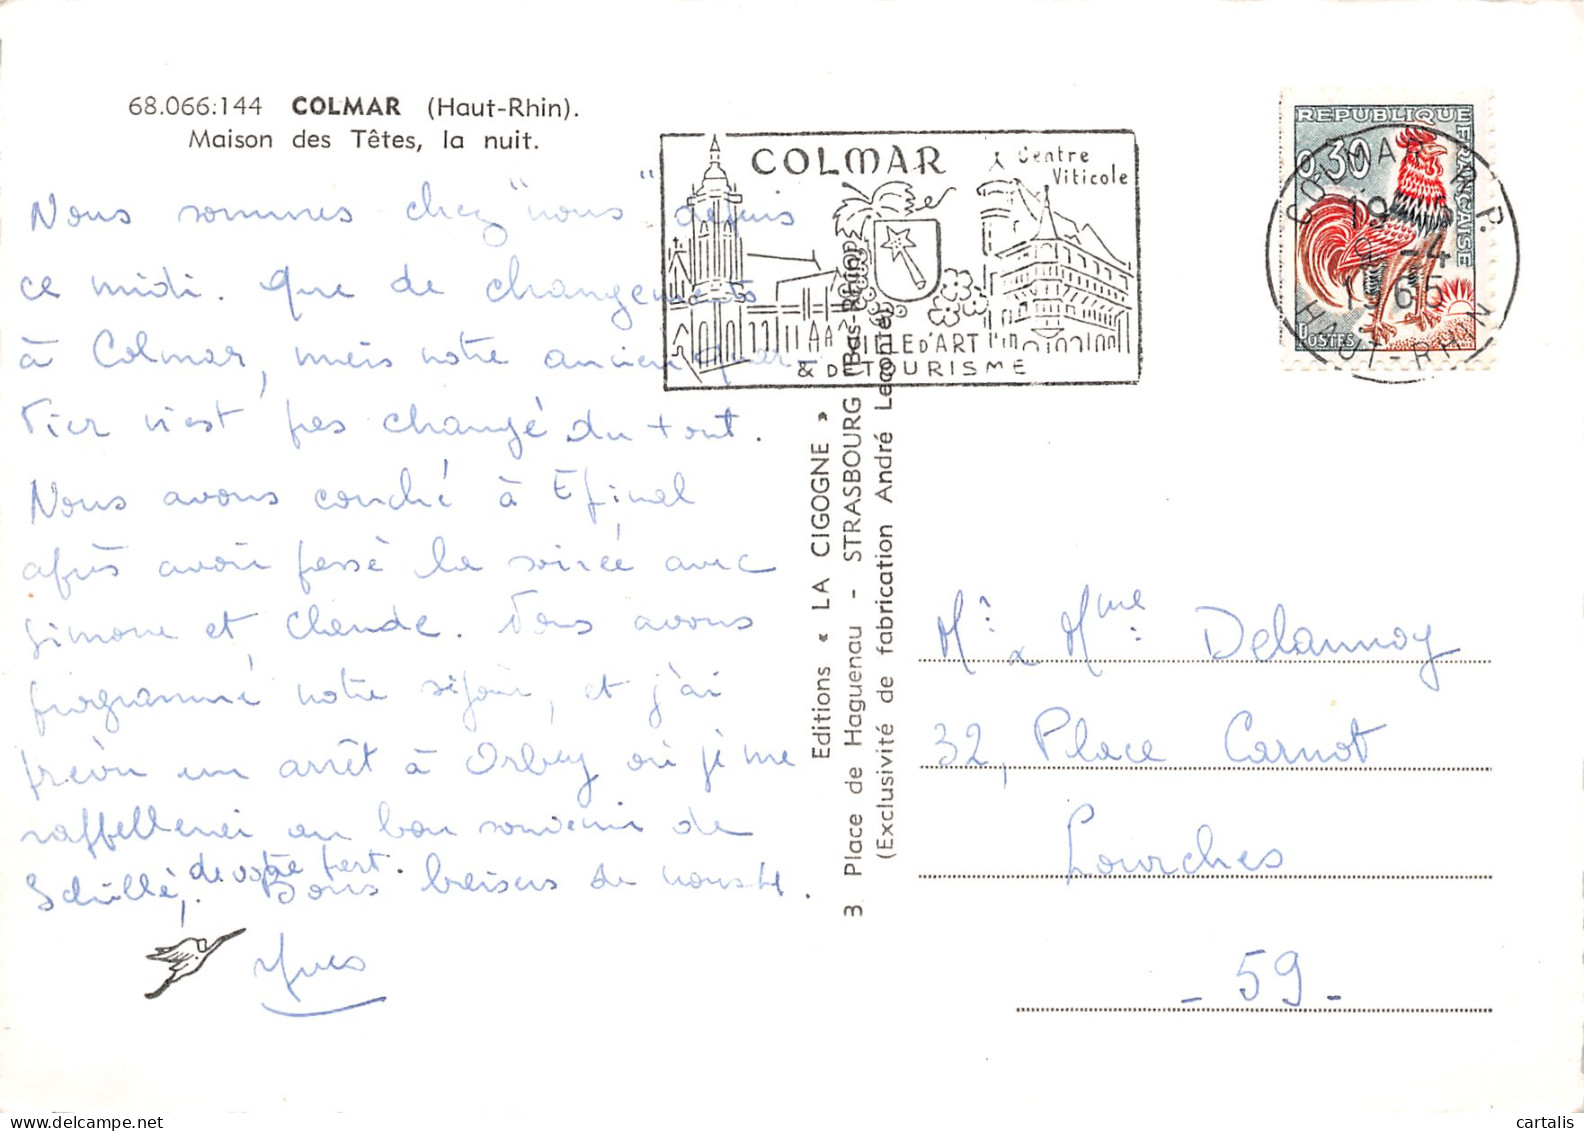 68.066:144 COLMAR (Haut-Rhin).
Maison des Têtes, la nuit.
Nous sommes chez "nous" depuis
ce midi. Que de changements
à Colmar, mais notre ancien quar-
tier n'est pas changé du tout.
Nous avons couché à Epinal
après avoir passé la soirée avec
Simone et Claude. Nous avons
programmé notre séjour, et j'ai
prévu un arrêt à Orbey où je me
rappellerai au bon souvenir de
Schillé, de votre part.
Bons baisers de nous 4.
Yves
COLMAR
Centre
Viticole
VILLE D'ART
& DE TOURISME
REPUBLIQUE FRANÇAISE
0,30
POSTES
COLMAR R.P.
19
-4
1965
HAUT-RHIN
Editions « LA CIGOGNE »
3 Place de Haguenau - STRASBOURG (Bas-Rhin)
(Exclusivité de fabrication André Leconte)
Mr. & Mme. Delannoy
32, Place Carnot
Lourches
- 59 -
cartalis